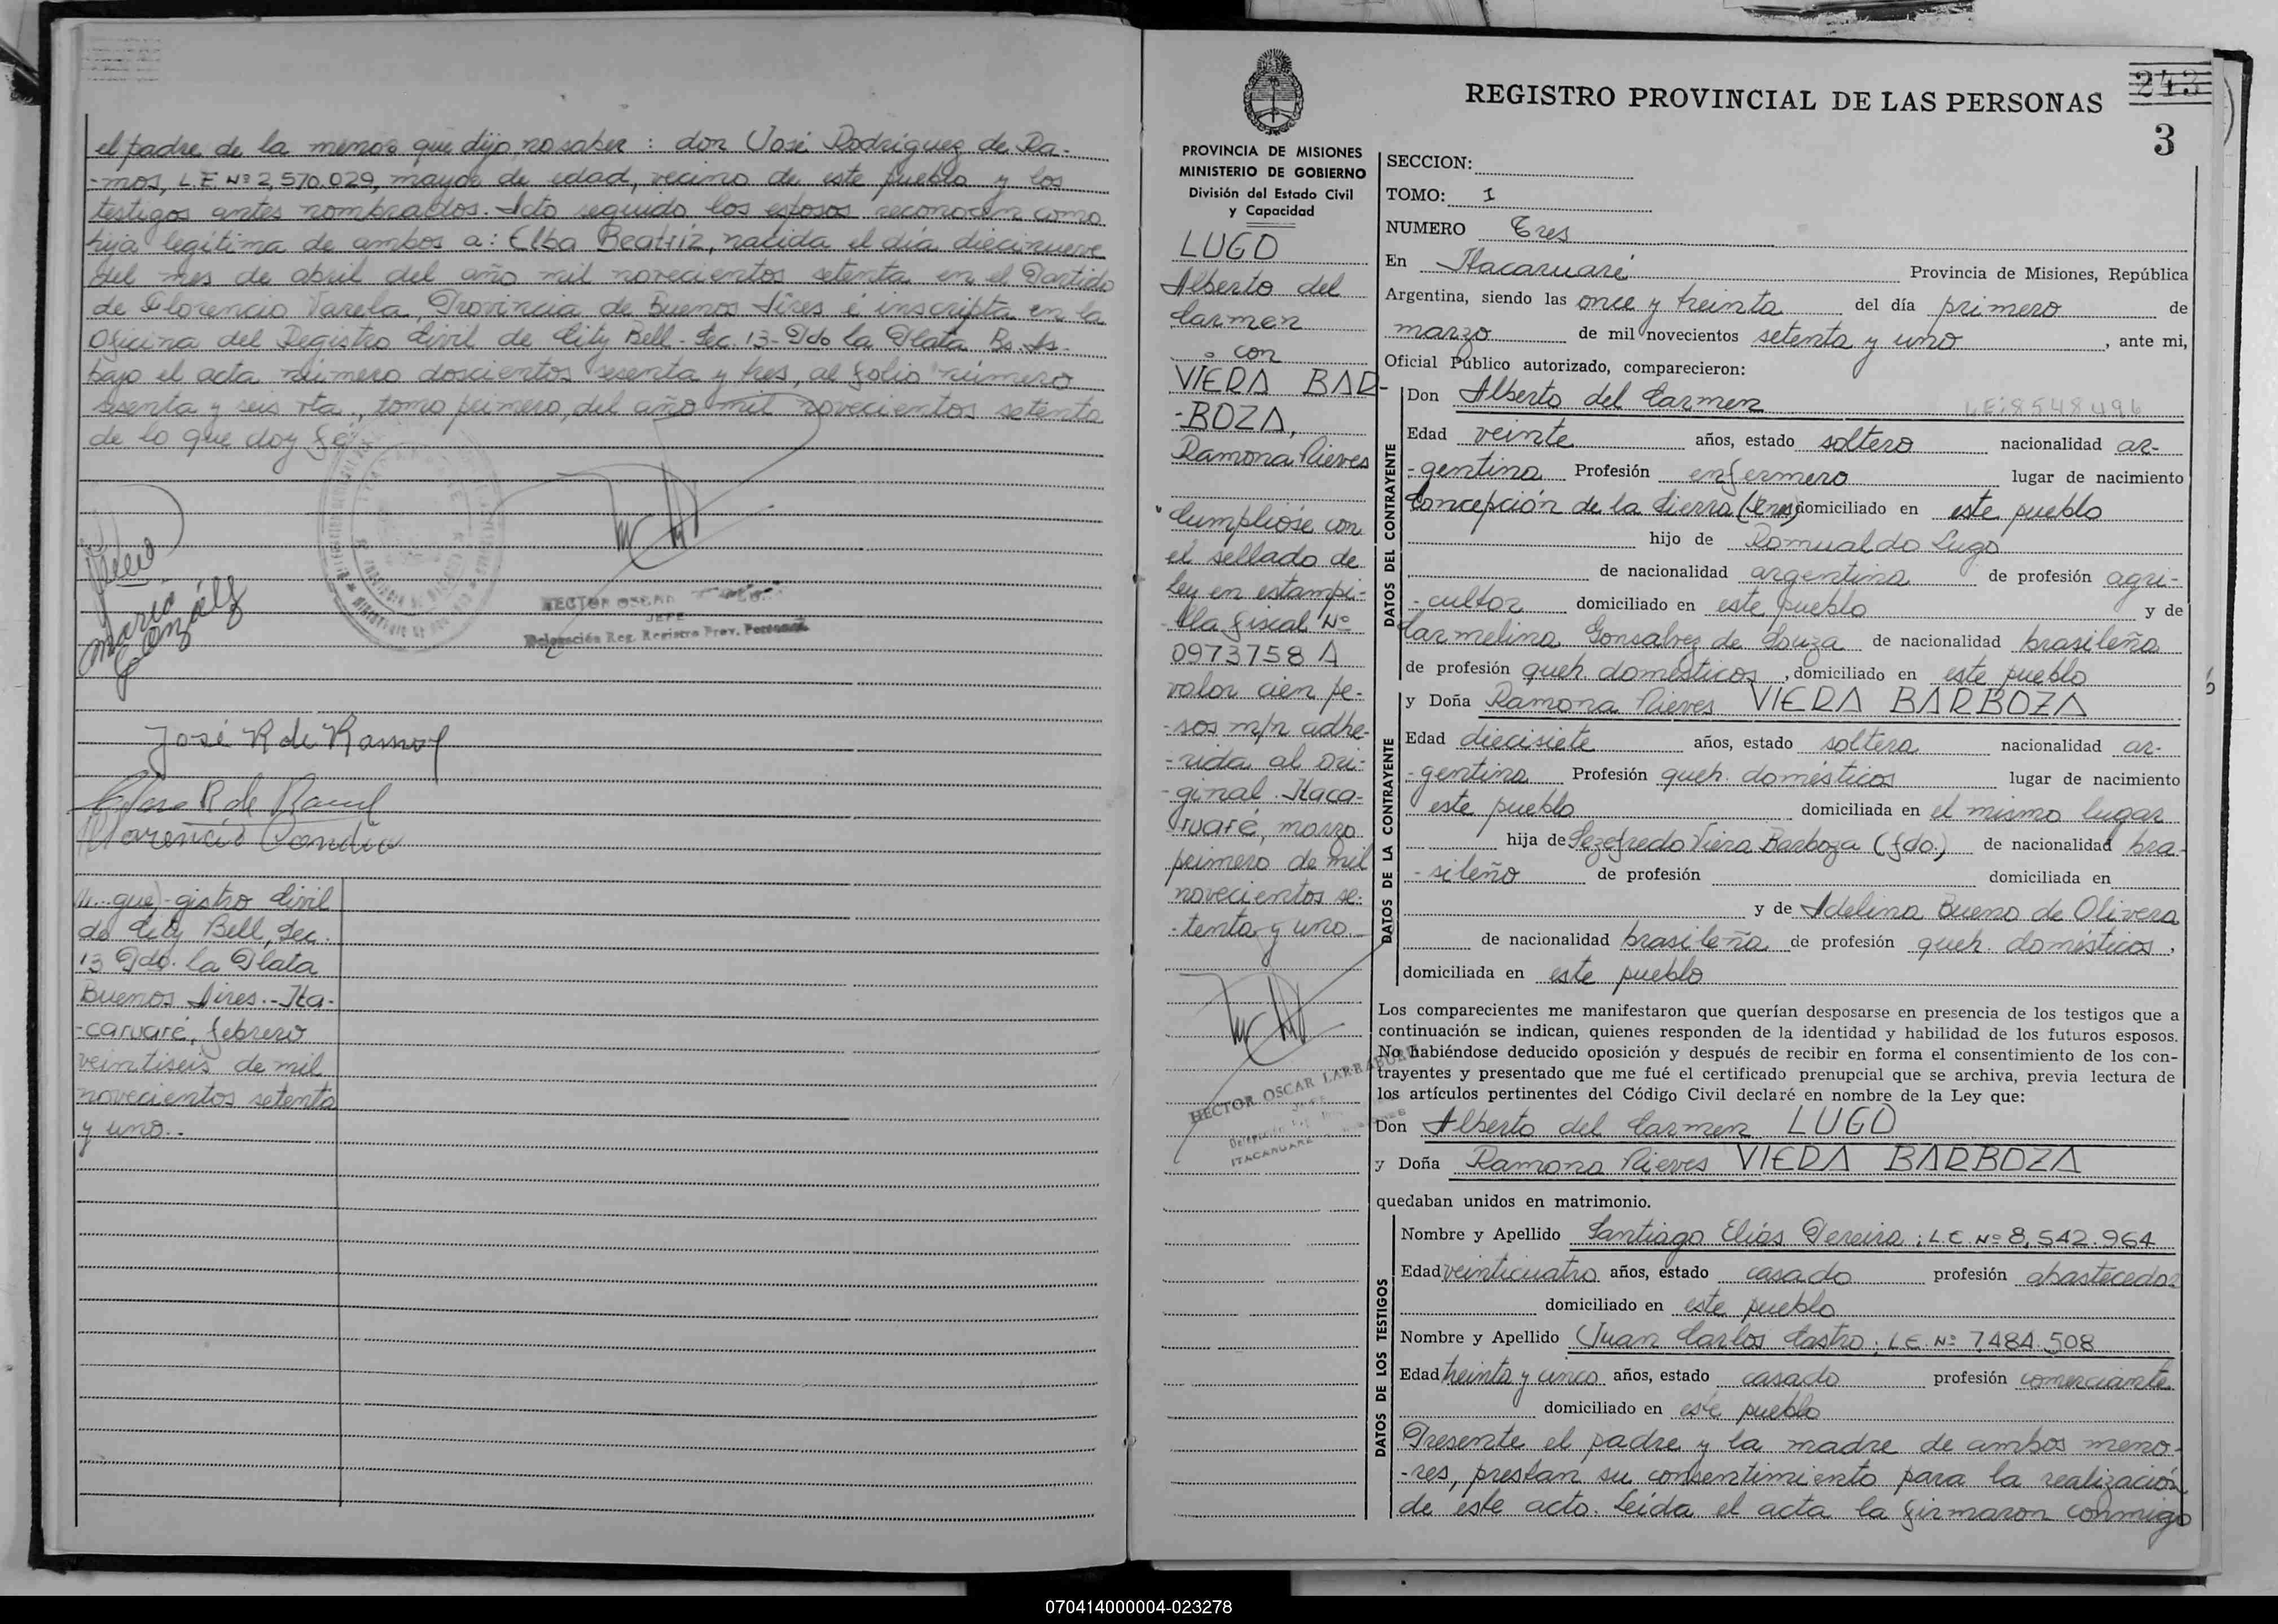 el padre de la menor que dijo no saber : don José Rodríguez de Ra-
-mos, L.E. Nº 2,570.029, mayor de edad, vecino de este pueblo y los
testigos antes nombrados. Acto seguido los esposos reconocen como
hija legítima de ambos a: Elba Beatriz, nacida el día diecinueve
del mes de abril del año mil novecientos setenta en el Partido
de Florencio Varela, Provincia de Buenos Aires é inscripta en la
Oficina del Registro Civil de City Bell - Sec. 13 - Pdo la Plata Bs. As.
bajo el acta número doscientos sesenta y tres, al folio número
sesenta y seis vta., tomo primero, del año mil novecientos setenta
de lo que doy fé
María
González
HECTOR OSCAR
JEFE
Delegación Reg. Registro Prov. Personas
José R de Ramos
R de
gistro Civil
de City Bell, Sec.
13 Pdo. la Plata
Buenos Aires.- Ita-
-caruaré, febrero
veintiseis de mil
novecientos setenta
y uno..
REGISTRO PROVINCIAL DE LAS PERSONAS
243
3
PROVINCIA DE MISIONES
MINISTERIO DE GOBIERNO
División del Estado Civil
y Capacidad
LUGO
Alberto del
Carmen
con
VIERA BAR-
-BOZA,
Ramona Nieves
Cumplióse con
el sellado de
ley en estampi-
-lla fiscal Nº
0973758 A
valor cien pe-
-sos m/n adhe-
-rida al ori-
-ginal. Itaca-
ruaré, marzo
primero de mil
novecientos se-
-tenta y uno
HECTOR OSCAR LARRABURU
ITACARUARE
SECCION:
TOMO: I
NUMERO Tres
En Itacaruaré Provincia de Misiones, República
Argentina, siendo las once y treinta del día primero de
marzo de mil novecientos setenta y uno, ante mi,
Oficial Público autorizado, comparecieron:
DATOS DEL CONTRAYENTE
Don Alberto del Carmen L.E: 8548496
Edad veinte años, estado soltero nacionalidad ar-
-gentina Profesión enfermero lugar de nacimiento
Concepción de la Sierra (Mnes) domiciliado en este pueblo
hijo de Romualdo Lugo
de nacionalidad argentina de profesión agri-
-cultor domiciliado en este pueblo y de
Carmelina Gonsalvez de Souza de nacionalidad brasileña
de profesión queh. domésticos, domiciliado en este pueblo
DATOS DE LA CONTRAYENTE
y Doña Ramona Nieves VIERA BARBOZA
Edad diecisiete años, estado soltera nacionalidad ar-
-gentina Profesión queh. domésticos lugar de nacimiento
este pueblo domiciliada en el mismo lugar
hija de Sezefredo Viera Barboza (fdo.) de nacionalidad bra-
-sileño de profesión domiciliada en
y de Adelina Bueno de Olivera
de nacionalidad brasileña de profesión queh. domésticos,
domiciliada en este pueblo
Los comparecientes me manifestaron que querían desposarse en presencia de los testigos que a
continuación se indican, quienes responden de la identidad y habilidad de los futuros esposos.
No habiéndose deducido oposición y después de recibir en forma el consentimiento de los con-
trayentes y presentado que me fué el certificado prenupcial que se archiva, previa lectura de
los artículos pertinentes del Código Civil declaré en nombre de la Ley que:
Don Alberto del Carmen LUGO
y Doña Ramona Nieves VIERA BARBOZA
quedaban unidos en matrimonio.
DATOS DE LOS TESTIGOS
Nombre y Apellido Santiago Elías Pereira; L.E. Nº 8,542.964
Edad veinticuatro años, estado casado profesión abastecedor
domiciliado en este pueblo
Nombre y Apellido Juan Carlos Castro; L.E. Nº 7,484.508
Edad treinta y cinco años, estado casado profesión comerciante
domiciliado en este pueblo
Presente el padre y la madre de ambos meno-
-res, prestan su consentimiento para la realización
de este acto. Leida el acta la firmaron conmigo
070414000004-023278